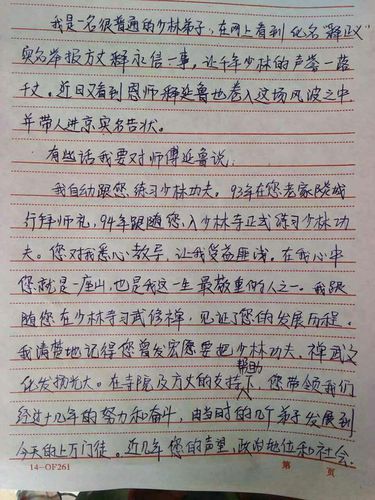 我是一名很普通的少林弟子，在网上看到化名"释正义"
实名举报方丈释永信一事，让千年少林的声誉一路
千丈。近日又看到恩师释延鲁也卷入这场风波之中，
并带人进京实名告状。
有些话我要对师傅延鲁说：
我自幼跟您练习少林功夫。93年在您老家陵城
行拜师礼，94年跟随您入少林寺正式练习少林功
夫。您对我悉心教导，让我受益匪浅。在我心中
您就是一座山，也是我这一生最敬重的人之一。我跟
随您在少林寺习武修禅，见证了您的发展历程。
我清楚地记得您曾发宏愿要把少林功夫、禅武文
化发扬光大。在寺院及方丈的支持帮助下，您带领我们
经过十几年的努力和奋斗，由当时的几个弟子发展到
今天的上万门徒。近几年您的声望、政治地位和社会
14-OF261 第 页